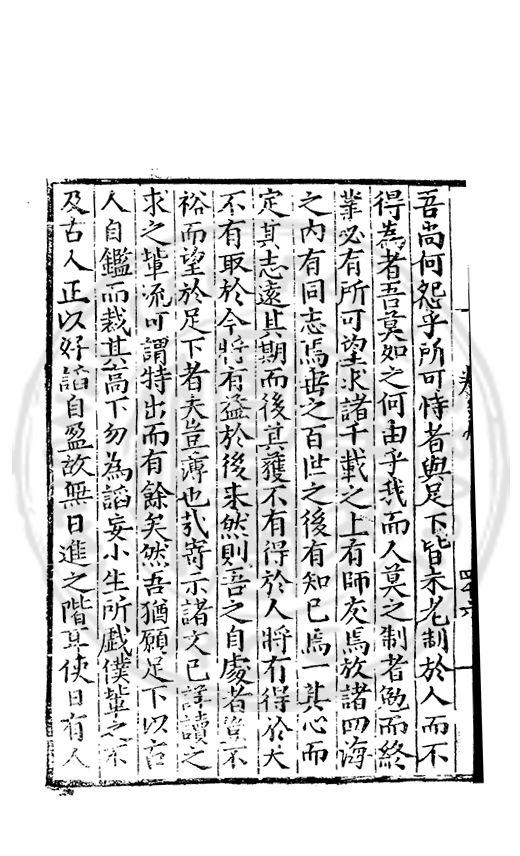 吾尚何怨乎所可恃者與足下皆未老制於人而不
得為者吾莫如之何由乎我而人莫之制者勉而終
業必有所可望求諸千載之上有師友焉放諸四海
之内有同志焉垂之百世之後有知已焉一其心而
定其志遠其期而後其獲不有得於人將有得於天
不有取於今將有益於後来然則吾之自處者豈不
裕而望於足下者夫豈薄也㢤寄示諸文已詳讀之
求之輩流可謂特出而有餘矣然吾猶願足下以古
人自鑑而裁其高下勿為謟妄小生所戱僕輩之不
及古人正以好謟自盈故無日進之階耳使日有人